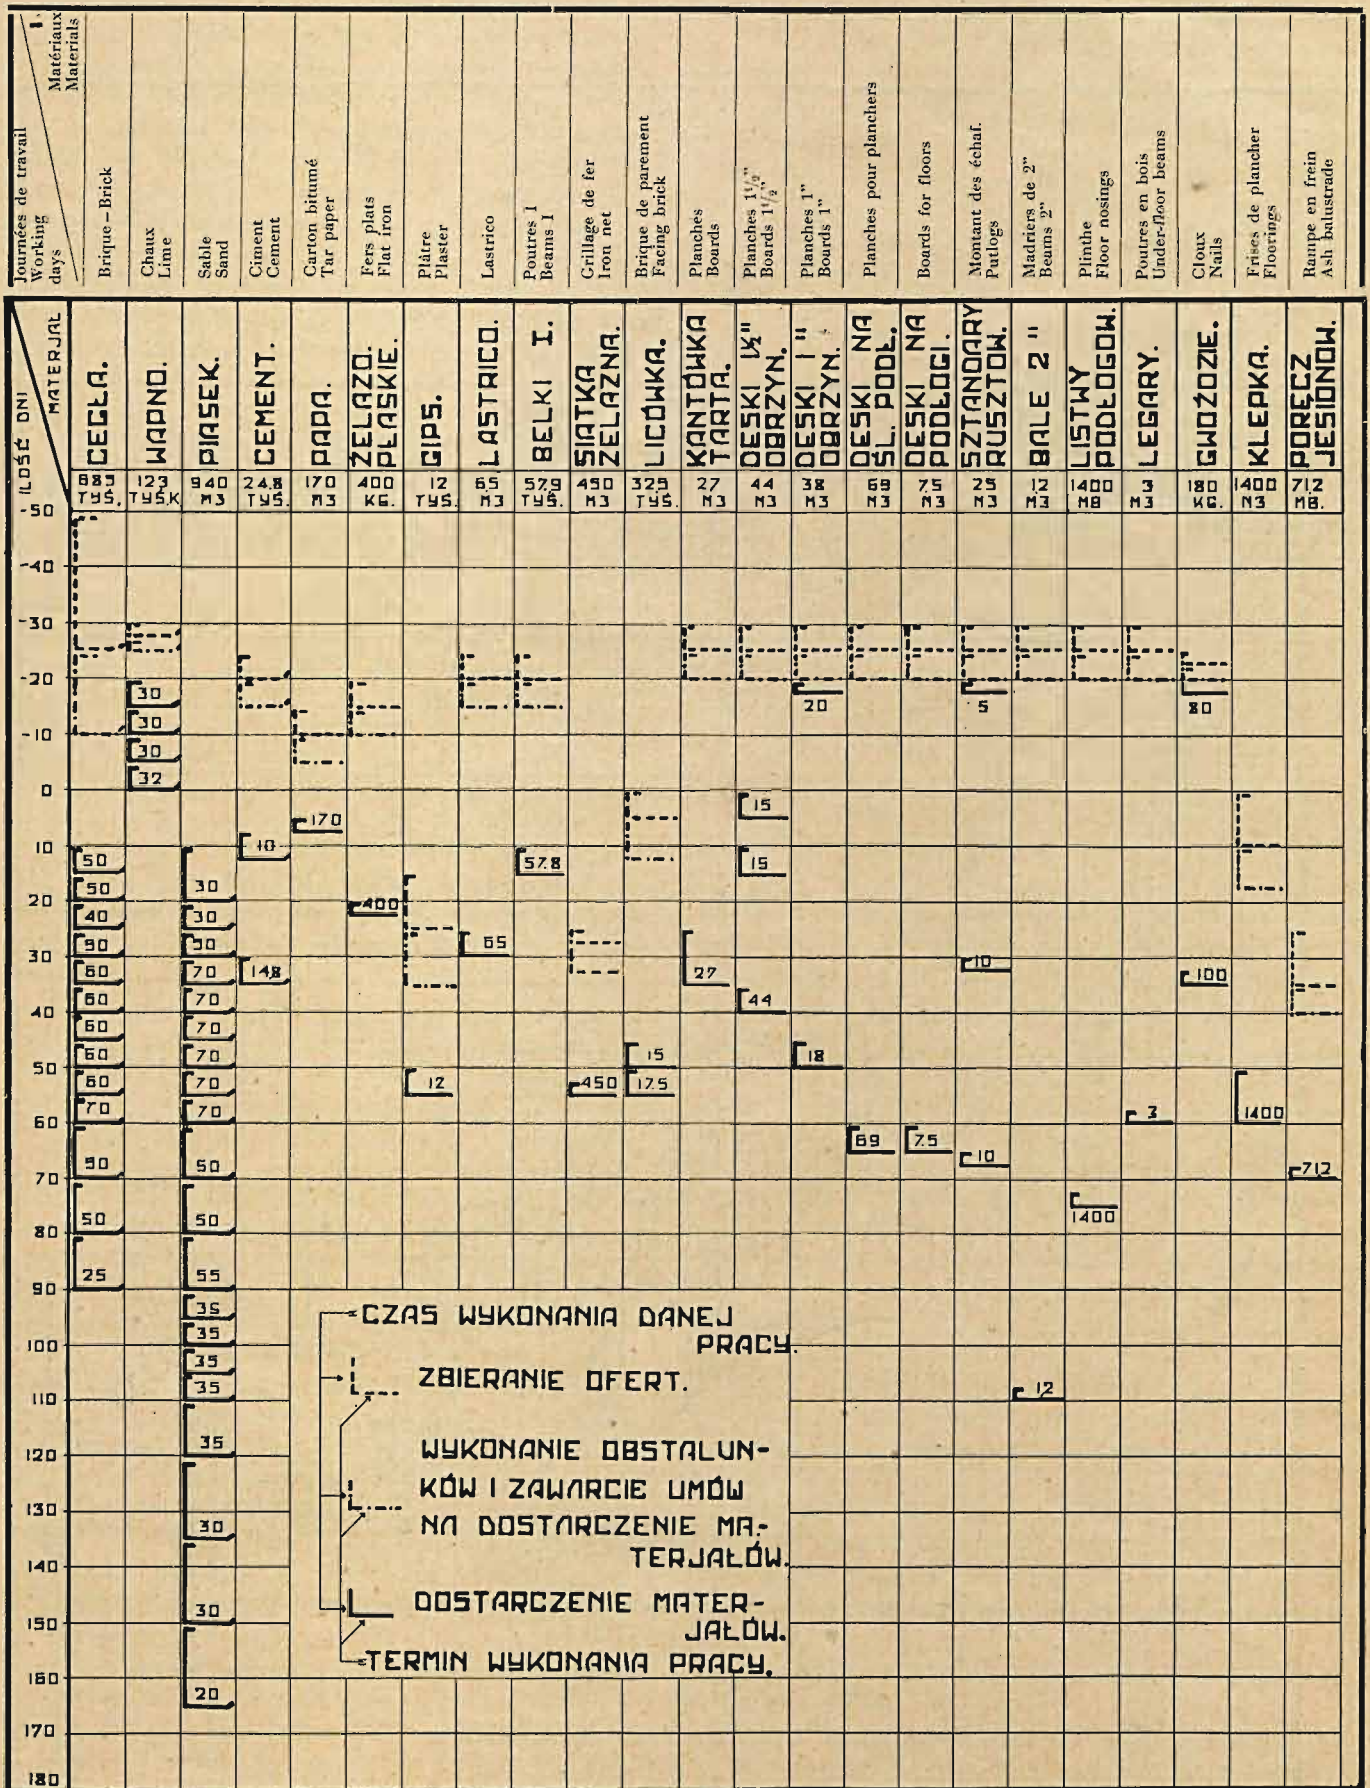 Journées de travail
Working
days
I.
Matériaux
Materials
Brique – Brick
Chaux
Lime
Sable
Sand
Ciment
Cement
Carton bitumé
Tar paper
Fers plats
Flat iron
Plâtre
Plaster
Lastrico
Poutres I
Beams I
Grillage de fer
Iron net
Brique de parement
Facing brick
Planches
Bourds
Planches 1½"
Boards 1½"
Planches 1"
Bourds 1"
Planches pour planchers
Boards for floors
Montant des échaf.
Putlogs
Madriers de 2"
Beums 2"
Plinthe
Floor nosings
Poutres en bois
Under-floor beams
Cloux
Nails
Frises de plancher
Floorings
Rampe en frein
Ash balustrade
ILOŚĆ DNI
MATERJAŁ
CEGŁA.
WAPNO.
PIASEK.
CEMENT.
PAPA.
ŻELAZO.
PŁASKIE.
GIPS.
LASTRICO.
BELKI I.
SIATKA
ŻELAZNA.
LICÓWKA.
KANTÓWKA
TARTA.
DESKI 1½"
OBRZYN.
DESKI 1"
OBRZYN.
DESKI NA
ŚL. PODŁ.
DESKI NA
PODŁOGI.
SZTANDARY
RUSZTOW.
BALE 2"
LISTWY
PODŁOGOW.
LEGARY.
GWOŹDZIE.
KLEPKA.
PORĘCZ
JESIONOW.
685 123 940 24.8 170 400 12 65 579 450 325 27 44 38 69 75 25 12 1400 3 180 1400 712
TYŚ. TYŚ.K M3 TYŚ. M3 KG. TYŚ. M3 TYŚ. M3 TYŚ. M3 M3 M3 M3 M3 M3 M3 MB M3 KG. M3 MB.
-50
-40
-30
-20
30 20 5 80
30
-10
30
32
0
15
170
10
10
50 57.8 15
50 30
20
400
40 30
50 30 65
10
30
60 70 14.8 27 100
60 70 44
40
60 70
60 70 15 18
50
60 70 12 450 17.5
70 70 3 1400
60
69 7.5
50 50 10
712
70
1400
50 50
80
25 55
90
35
35
100
35
35
12
110
35
120
30
130
140
30
150
160
20
170
180
CZAS WYKONANIA DANEJ
PRACY.
ZBIERANIE OFERT.
WYKONANIE OBSTALUN-
KÓW I ZAWARCIE UMÓW
NA DOSTARCZENIE MA-
TERJAŁÓW.
DOSTARCZENIE MATER-
JAŁÓW.
TERMIN WYKONANIA PRACY.